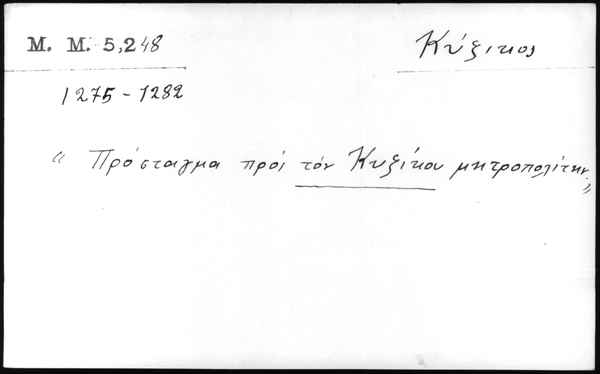 M. M. 5,248
Κύζικος
1275-1282
“ Πρόσταγμα πρός τόν Κυζίκου μητροπολίτην „